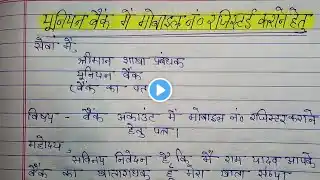 यूनियन बैंक में मोबाइल नं० रजिस्टर्ड कराने हेतु
सेवा में,
श्रीमान शाखा प्रबंधक
यूनियन बैंक
(बैंक का पता
विषय - बैंक अकाउंट में मोबाइल नं० रजिस्टर कराने
हेतु पत्र।
महोदय,
सविनय निवेदन है कि मैं राम यादव आपके
बैंक का खाताधारक हूँ मेरा खाता संख्या